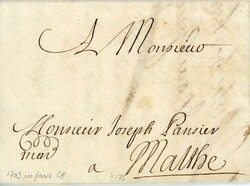 A Monsieur
Monsieur Joseph Pansier
a Malthe
1703